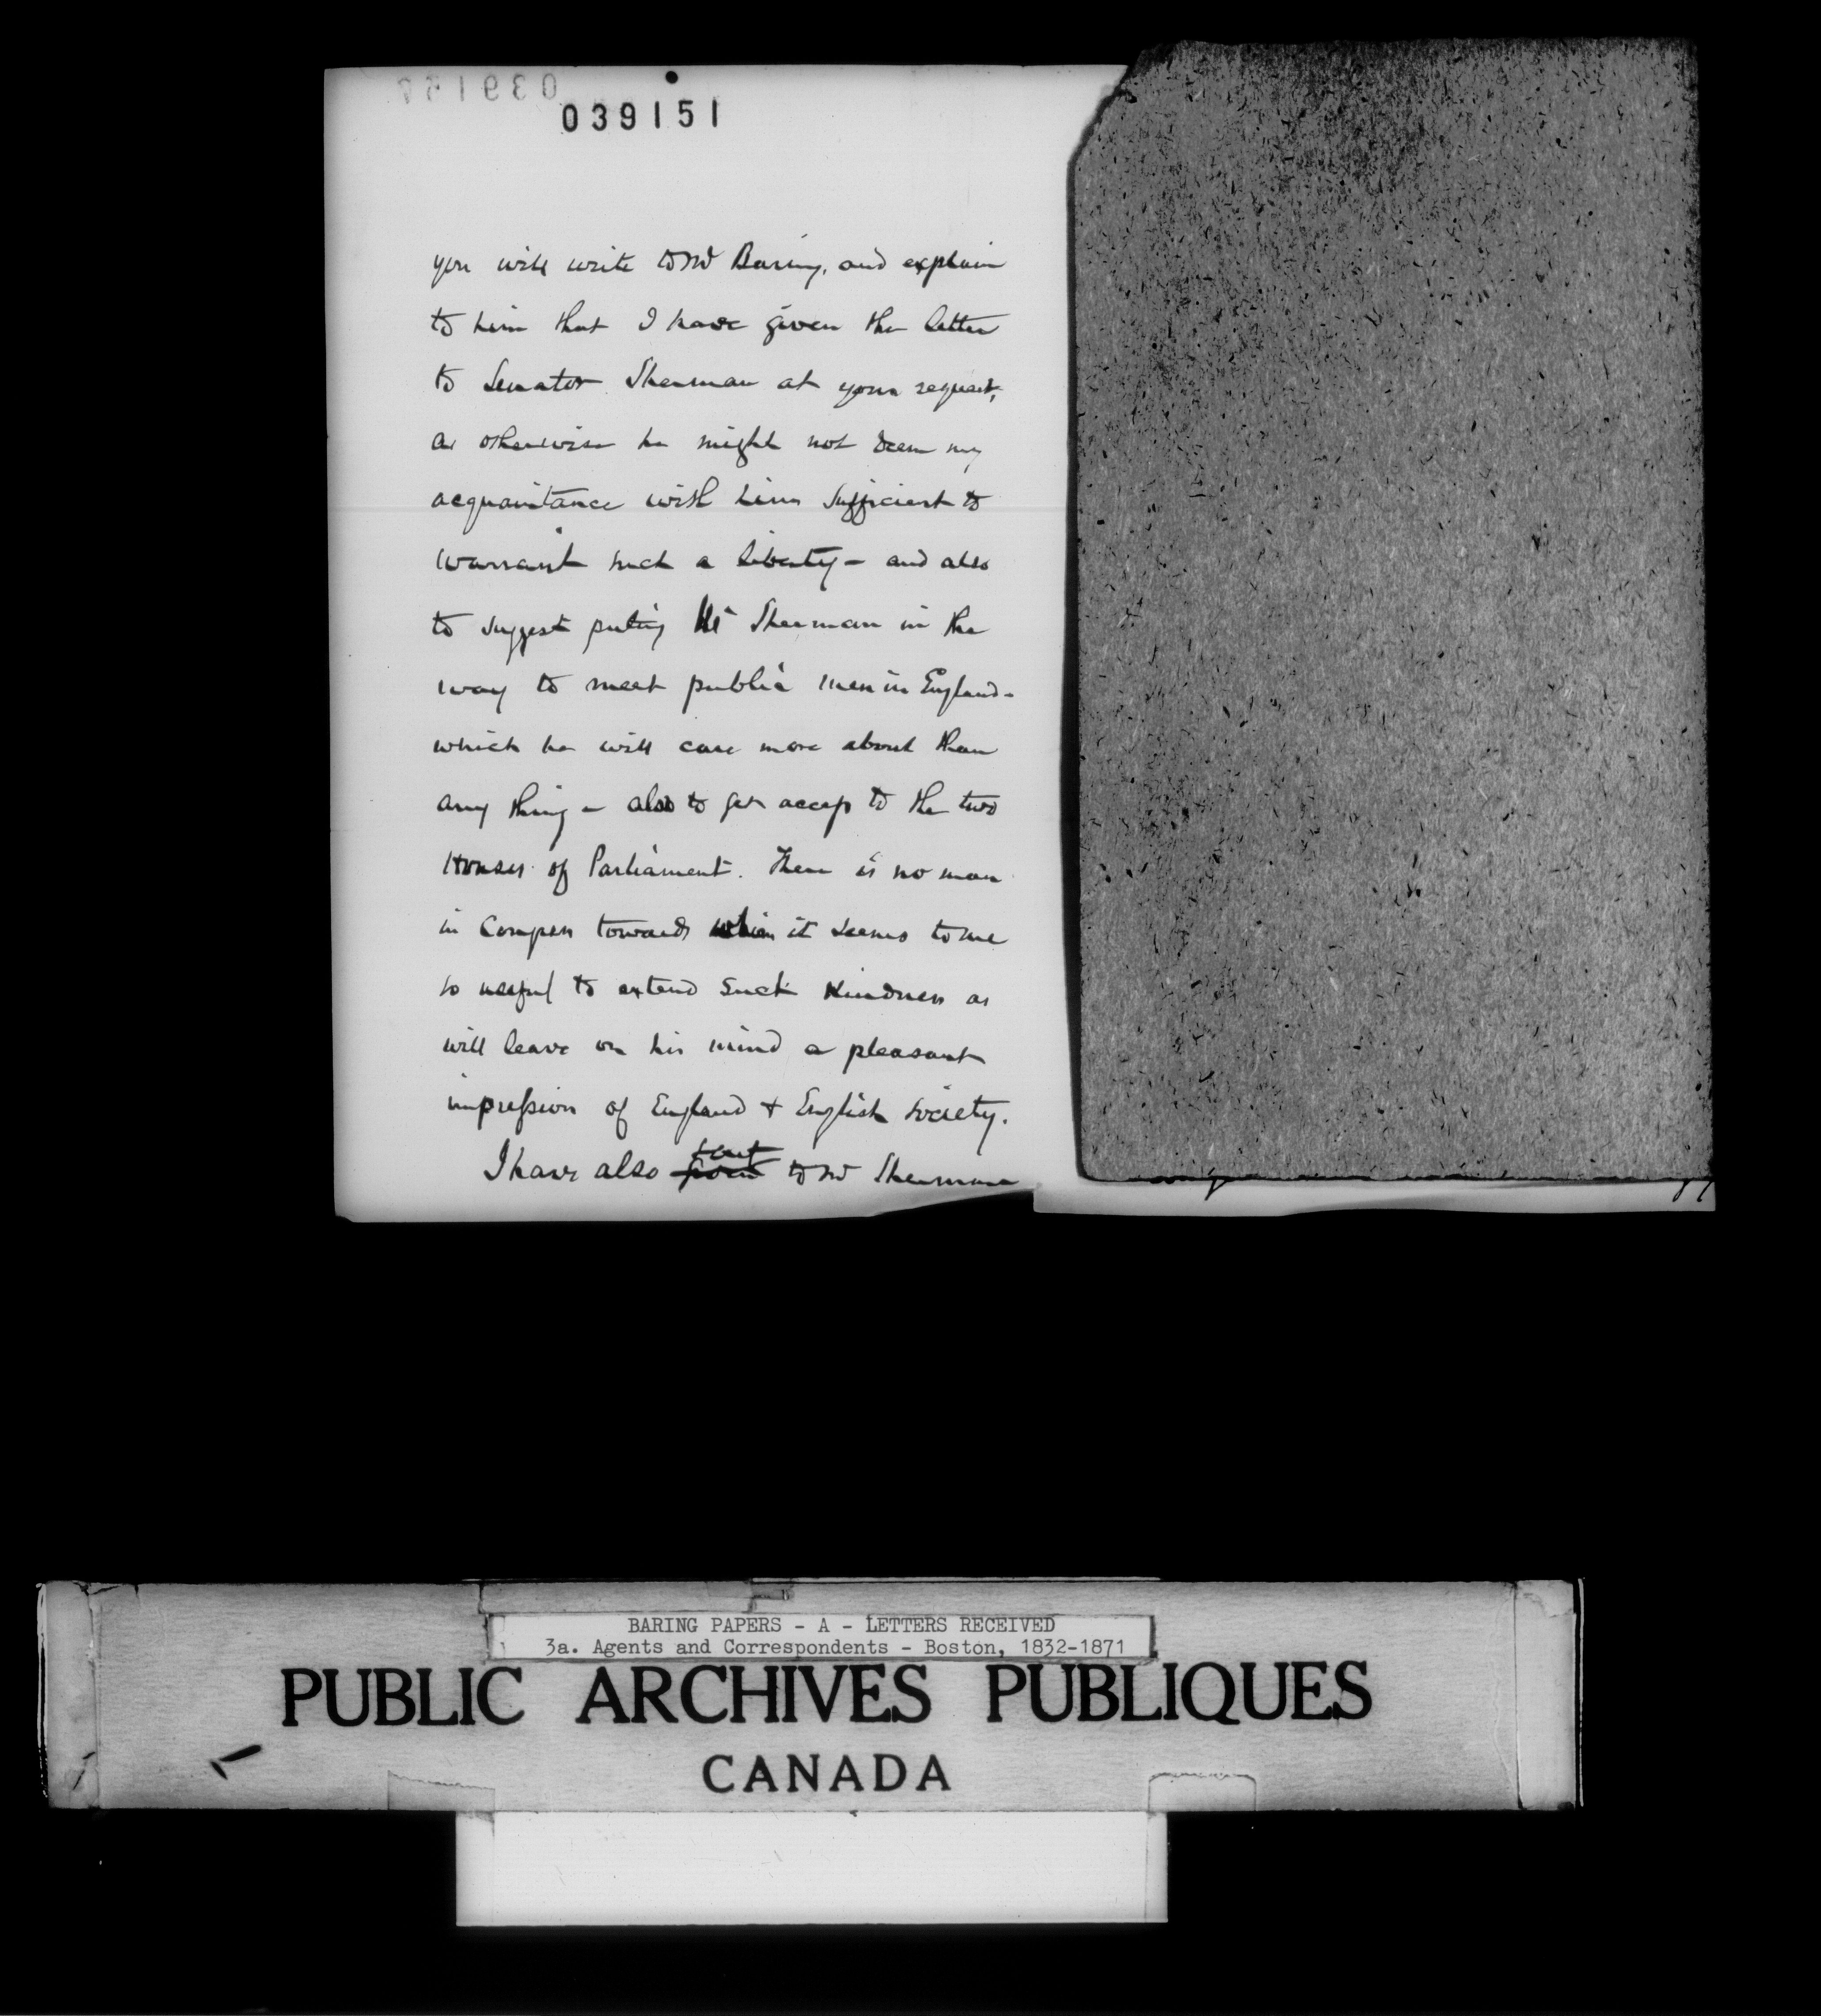 039151
you will write to Mr Baring, and explain
to him that I have given the letter
to Senator Sherman at your request,
as otherwise he might not deem my
acquaintance with him sufficient to
warrant such a liberty - and also
to suggest puting Mr Sherman in the
way to meet public men in England -
which he will care more about than
any thing - also to get access to the two
Houses of Parliament. There is no man
in Congress towards whom it seems to me
so useful to extend such kindness as
will leave on his mind a pleasant
impression of England + English society.
I have also sent to Mr Sherman
BARING PAPERS - A - LETTERS RECEIVED
3a. Agents and Correspondents - Boston, 1832-1871
PUBLIC ARCHIVES PUBLIQUES
CANADA